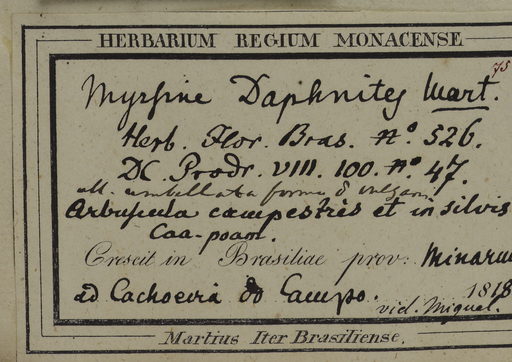 HERBARIUM REGIUM MONACENSE
75
Myrsine Daphnites Mart.
Herb. Flor. Bras. No. 526.
DC. Prodr. VIII. 100. No. 47.
umbellata forma δ vulgaris
Arbuscula campestris et in silvis
Caa-poam.
Crescit in Brasiliae prov. Minarum
ad Cachoeira do Campo. 1818
vid. Miquel.
Martius Iter Brasiliense.